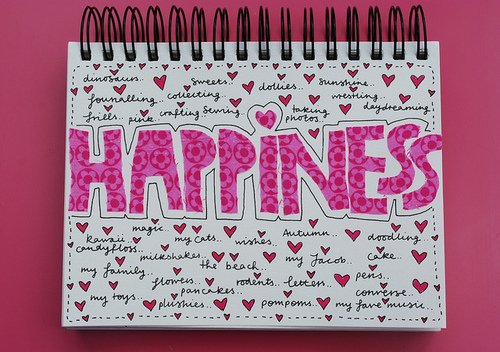 dinosaurs.. sweets.. dollies.. sunshine..
journalling.. collecting.. wrestling..
frills.. pink.. crafting.. sewing.. taking photos.. daydreaming..
HAPPINESS
magic.. my cats.. wishes.. Autumn.. doodling..
kawaii.. candyfloss.. milkshakes.. the beach.. my Jacob.. cake..
my family.. flowers.. rodents.. letters.. pens..
my toys.. pancakes.. converse..
plushies.. pompoms.. my fave music...